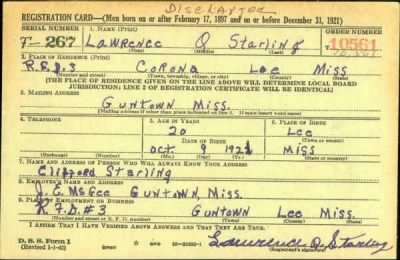 DISCLAYTON
REGISTRATION CARD—(Men born on or after February 17, 1897 and on or before December 31, 1921)
SERIAL NUMBER 1. NAME (Print) ORDER NUMBER
T- 267 Lawrence O Starling 10561
(First) (Middle) (Last)
2. PLACE OF RESIDENCE (Print)
R.F.D.3 Corona Lee Miss
(Number and street) (Town, township, village, or city) (County) (State)
(THE PLACE OF RESIDENCE GIVEN ON THE LINE ABOVE WILL DETERMINE LOCAL BOARD
JURISDICTION; LINE 2 OF REGISTRATION CERTIFICATE WILL BE IDENTICAL)
3. MAILING ADDRESS
Guntown Miss.
(Mailing address if other than place indicated on line 2. If same insert word same)
4. TELEPHONE 5. AGE IN YEARS 6. PLACE OF BIRTH
20 Lee
DATE OF BIRTH (Town or county)
Oct 9 1921 Miss
(Exchange) (Number) (Mo.) (Day) (Yr.) (State or country)
7. NAME AND ADDRESS OF PERSON WHO WILL ALWAYS KNOW YOUR ADDRESS
Clifford Starling
8. EMPLOYER'S NAME AND ADDRESS
J. C. McGee Guntown, Miss.
9. PLACE OF EMPLOYMENT OR BUSINESS
R.F.D.#3 Guntown Lee Miss.
(Number and street or R. F. D. number) (Town) (County) (State)
I AFFIRM THAT I HAVE VERIFIED ABOVE ANSWERS AND THAT THEY ARE TRUE.
D. S. S. Form 1
(Revised 1-1-42) Lawrence O. Starling
(Registrant's signature)